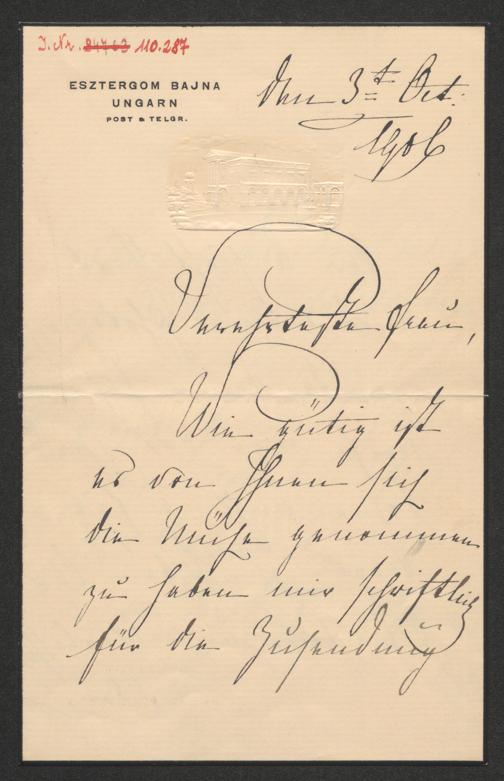 I. Nr. 84763 110.287
ESZTERGOM BAJNA
UNGARN
POST & TELGR.
den 3t Oct:
1906
Verehrteste Frau,
Wie gütig ist
es von Ihnen sich
die Mühe genommen
zu haben mir schriftlich
für die Zusendung